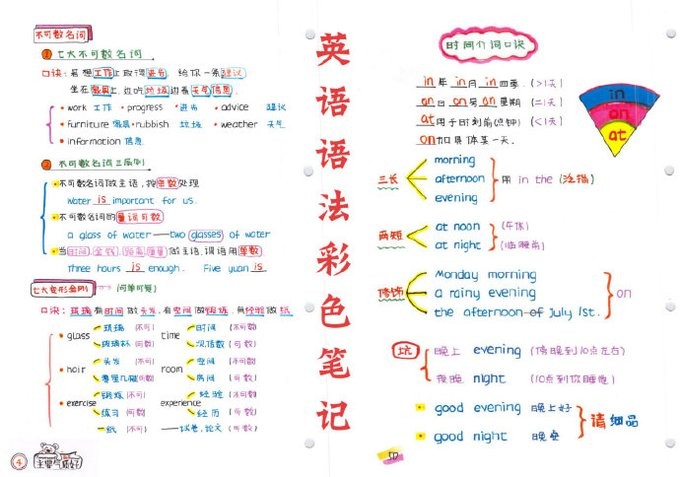 不可数名词
① 七大不可数名词
口诀:若想工作上取得进步 给你一条建议
坐在家具上,边吃垃圾边看天气信息.
• work 工作 • progress 进步 • advice 建议
• furniture 家具 • rubbish 垃圾 • weather 天气
• information 信息.
② 不可数名词三原则
不可数名词做主语,按单数处理
water is important for us.
不可数名词的量词可数
a glass of water — two glasses of water
当时间,金钱,距离,重量做主语,谓语用单数
three hours is enough. Five yuan is
七大变形金刚 (可单可复)
口诀:玻璃有时间做头发,有空间做锻炼,有经验做纸
• glass 玻璃 (不可) time 时间 (不可数)
玻璃杯 (可数) 次/倍数 (可数)
• hair 头发 (不可) room 空间 (不可数)
哪里几根 (可数) 房间 (可数)
• exercise 锻炼 (不可) experience 经验 (不可数)
练习 (可数) 经历 (可数)
纸 (不可) 试卷,论文 (可数)
④
英语语法彩色笔记
时间介词口诀
in 年 in 月 in 四季. (>1天)
on 日 on 号 on 星期 (=1天)
at 用于时刻前(点钟) (<1天)
on 加具体某一天.
in
on
at
三长
morning
afternoon
evening
用 in the (泛指)
两短
at noon (午休)
at night (临睡前)
修饰
Monday morning
a rainy evening
the afternoon of july 1st.
on
坑
晚上 evening (傍晚到10点左右)
夜晚 night (10点到你睡觉)
good evening 晚上好
good night 晚安
请细品